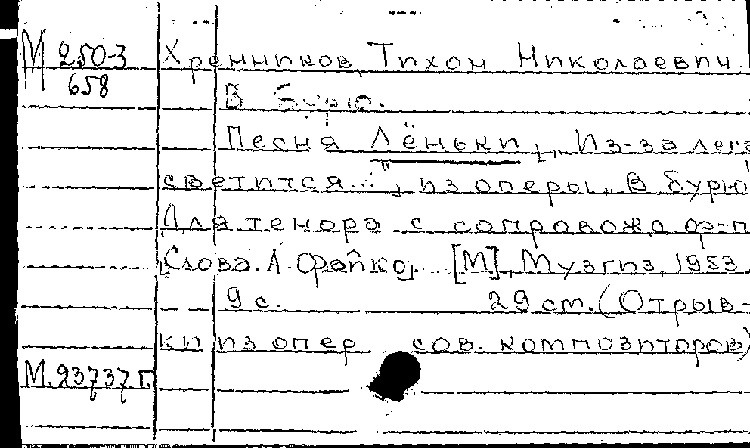 М 250-3
658
Хренников, Тихон Николаевич.
В бурю.
Песня Лёньки „Из-за леса
светится...", из оперы „В бурю
Для тенора с сопровожд. ф-п
Слова А. Файко. [М], Музгиз, 1953.
9 с. 29 см. (Отрыв-
ки из опер сов. композиторов)
М.23737 г.